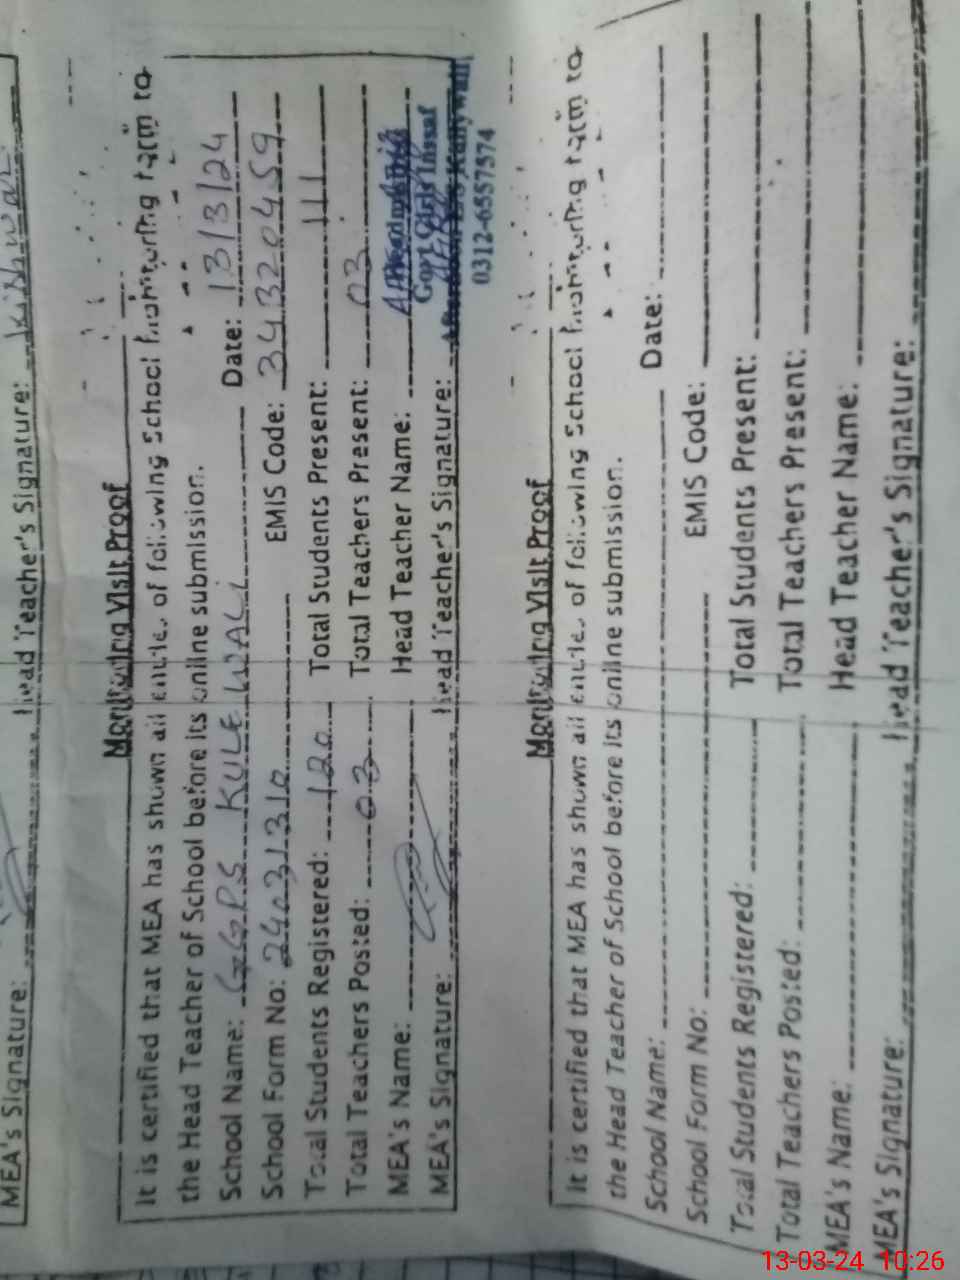 MEA's Signature: Head Teacher's Signature:
Monitoring Visit Proof
It is certified that MEA has shown all entries of following School Monitoring Form to
the Head Teacher of School before its online submission.
School Name: GGPS KULE WALI Date: 13/3/24
School Form No: 24031310 EMIS Code: 34320459
Total Students Registered: 120 Total Students Present: 111
Total Teachers Posted: 03 Total Teachers Present: 03
MEA's Name: Head Teacher Name:
MEA's Signature: Head Teacher's Signature:
0312-6557574
Monitoring Visit Proof
It is certified that MEA has shown all entries of following School Monitoring Form to
the Head Teacher of School before its online submission.
School Name: Date:
School Form No: EMIS Code:
Total Students Registered: Total Students Present:
Total Teachers Posted: Total Teachers Present:
MEA's Name: Head Teacher Name:
MEA's Signature: Head Teacher's Signature:
13-03-24 10:26